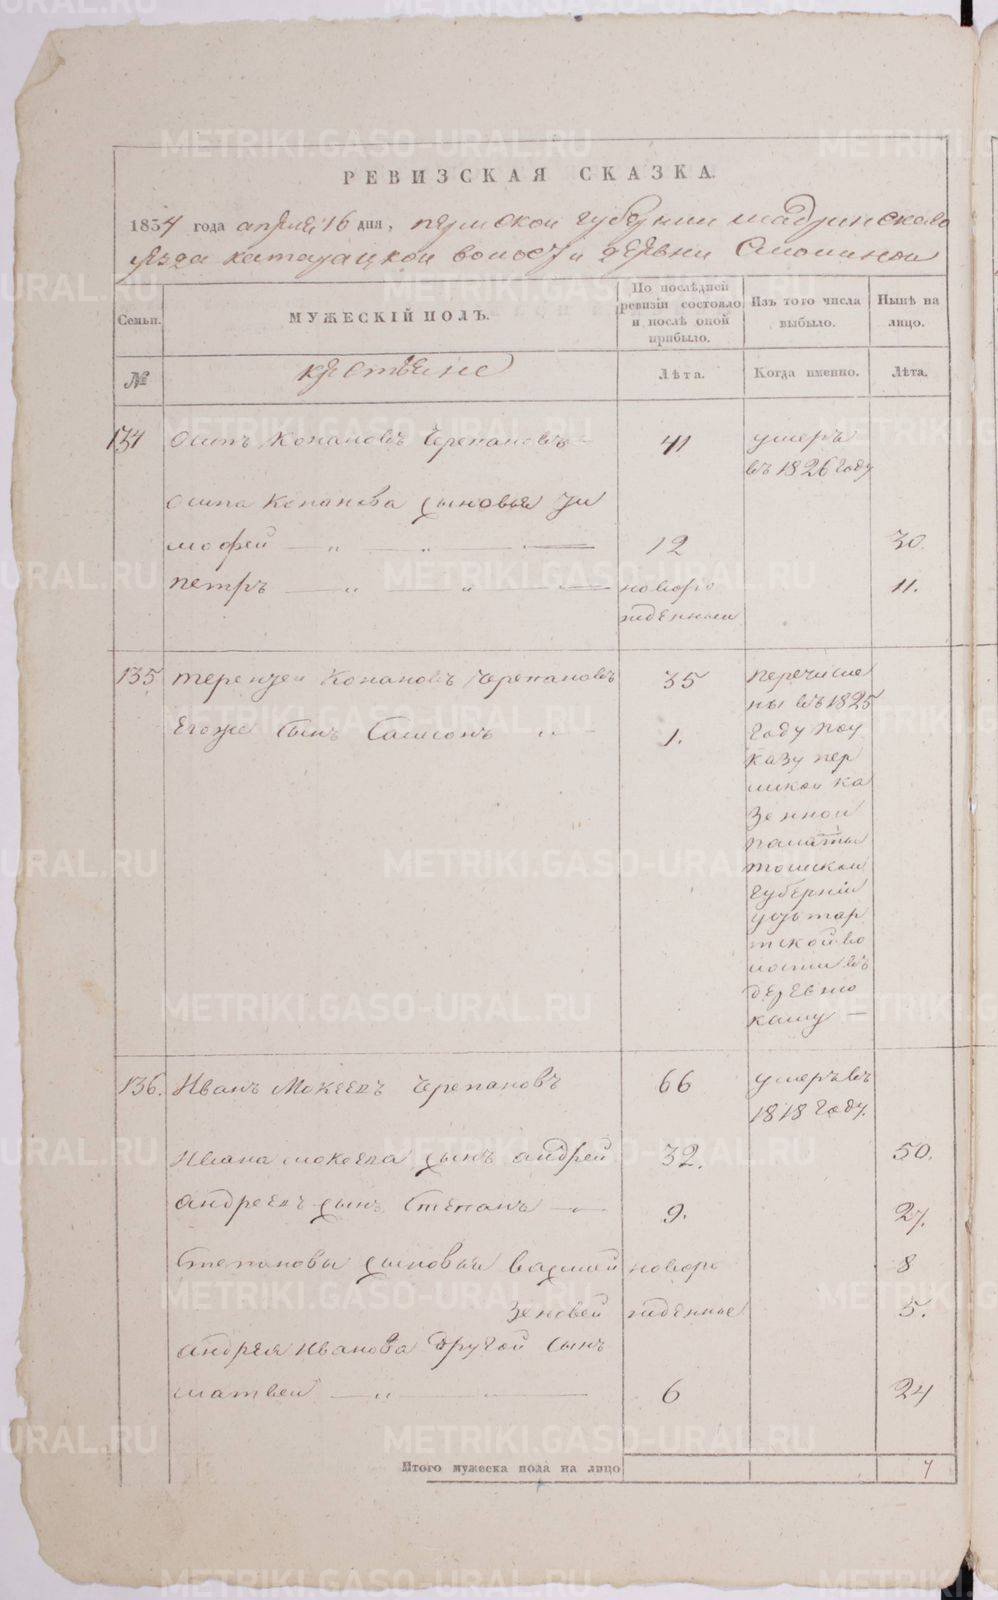 РЕВИЗСКАЯ СКАЗКА.
1834 года апреля 16 дня, пермской губернии шадринского
уезда катаидской волости деревни Смолиной
Семьи.
МУЖЕСКІЙ ПОЛЪ.
По послѣдней ревизіи состояло и послѣ оной прибыло.
Изъ того числа выбыло.
Нынѣ на лицо.
№
крестьяне
Лѣта.
Когда именно.
Лѣта.
134 Осипъ Конановъ Черепановъ 41 умеръ
въ 1826 году
Осипа Конанова сыновья Ти
мофей — „ — „ — 12 30.
петръ — „ — „ — новоро 11.
жденный
135 терентей Конановъ Черепановъ 35 перечисле
ны въ 1825
Егоже сынъ Самсонъ „ 1. году поу
казу пер
мской ка
зенной
палаты
томской
губернии
усть тар
тской во
лости въ
деревню
кашу —
136. Иванъ Мокеевъ Черепановъ 66 умеръ въ
1818 году.
Ивана мокеева сынъ андрей 32. 50.
андреевъ сынъ Степанъ — „ 9. 27.
Степановы сыновья василей новоро 8
зеновей жденные 5.
андрея иванова другой сынъ
матвей — „ — 6 24
Итого мужеска пола на лицо 7
METRIKI.GASO-URAL.RU